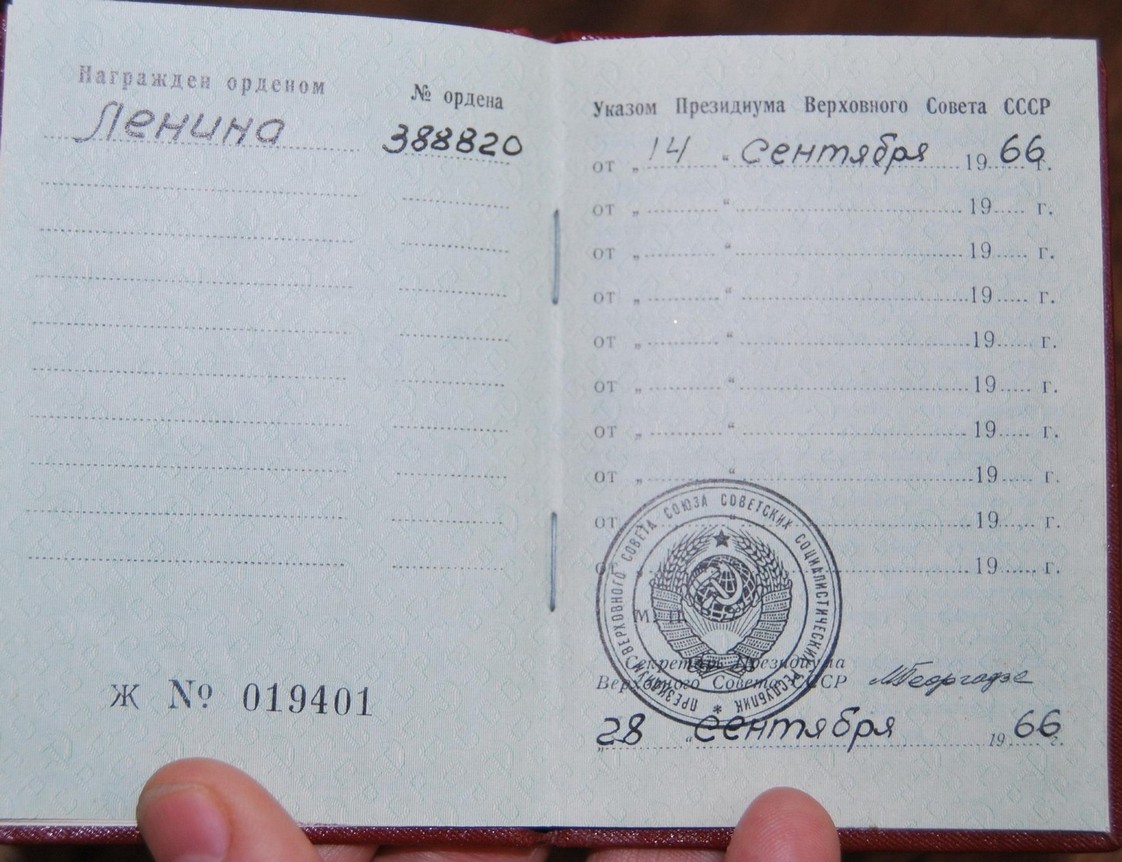 Награжден орденом
№ ордена
Ленина
388820
Ж № 019401
Указом Президиума Верховного Совета СССР
от „ 14 “ сентября 19 66 г.
от „ “ 19 г.
от „ “ 19 г.
от „ “ 19 г.
от „ “ 19 г.
от „ “ 19 г.
от „ “ 19 г.
от „ “ 19 г.
от „ “ 19 г.
от „ “ 19 г.
М. П.
ПРЕЗИДИУМ ВЕРХОВНОГО СОВЕТА СОЮЗА СОВЕТСКИХ СОЦИАЛИСТИЧЕСКИХ РЕСПУБЛИК *
Секретарь Президиума
Верховного Совета СССР
МГеоргадзе
„ 28 “ сентября 19 66 г.